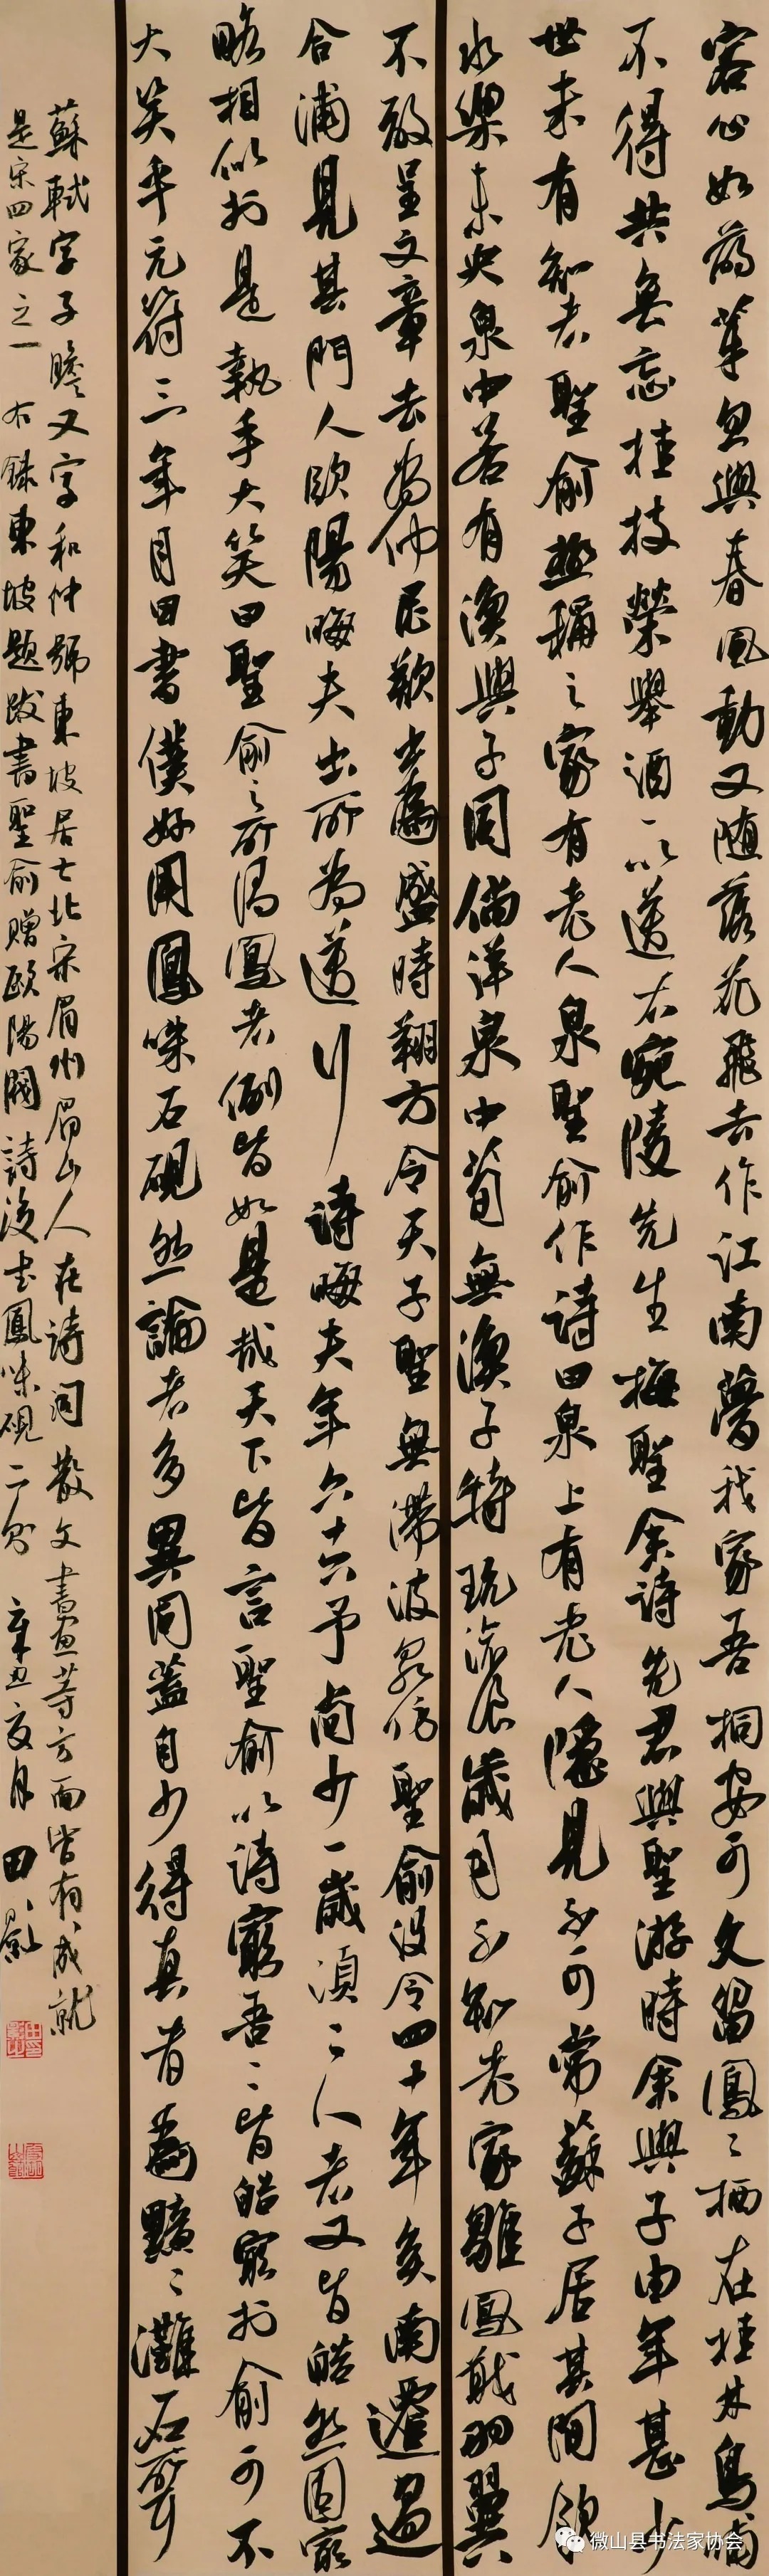 客心如萌芽忽與春風動又随落花飛去作江南夢我家吾桐安可久留鳳鳳栖在桂林烏哺
不得共無忘桂枝榮舉酒一以送右宛陵先生梅聖俞詩先君與聖游時余與子由年甚少
世未有知者聖俞極稱之家有老人泉聖俞作詩曰泉上有老人隱見不可常蘇子居其間飲
水樂未央泉中若有漁與子同徜徉泉中苟無漁子特玩滄浪歲月不知老家雛鳳戢羽翼
不敢呈文章去為仲尼歎出為盛時翔方今天子聖無滯彼泉傍聖俞没今四十年矣南遷過
合浦見其門人歐陽晦夫出所為送行詩晦夫年六十六予尚少一歲須二人者又皆皓然固窮
略相似於是執手大笑曰聖俞之所謂鳳者例皆如是哉天下皆言聖俞以詩窮吾二皆皓窮於俞可不
大笑乎元符三年月日書僕好用鳳咮石硯然論者多異同蓋自少得真者為黯黮灘石所
蘇軾字子瞻又字和仲號東坡居士北宋眉州眉山人在詩詞散文書畫等方面皆有成就
是宋四家之一右録東坡題跋書聖俞赠歐陽閥詩後書鳳咮硯二則辛丑夏月田
微山县书法家协会